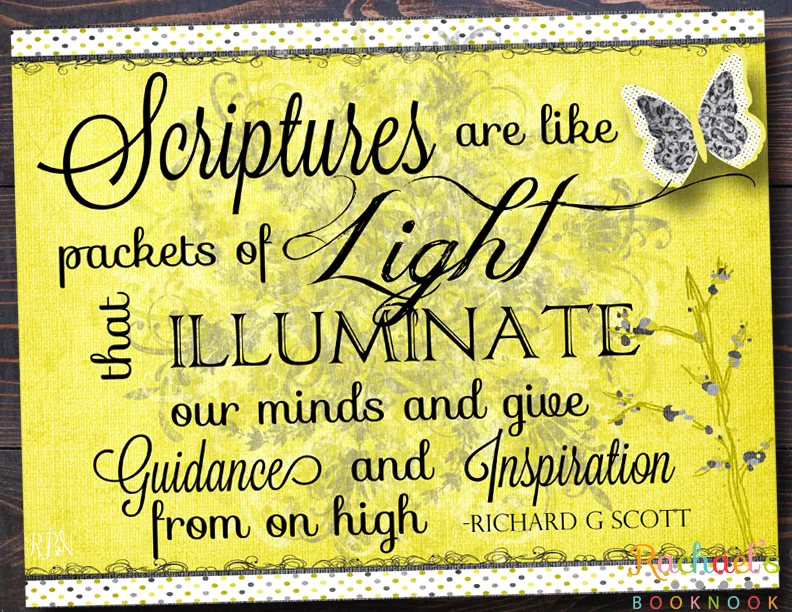 Scriptures are like
packets of Light
that ILLUMINATE
our minds and give
Guidance and Inspiration
from on high -RICHARD G SCOTT
RBN
Rachael's
BOOKNOOK